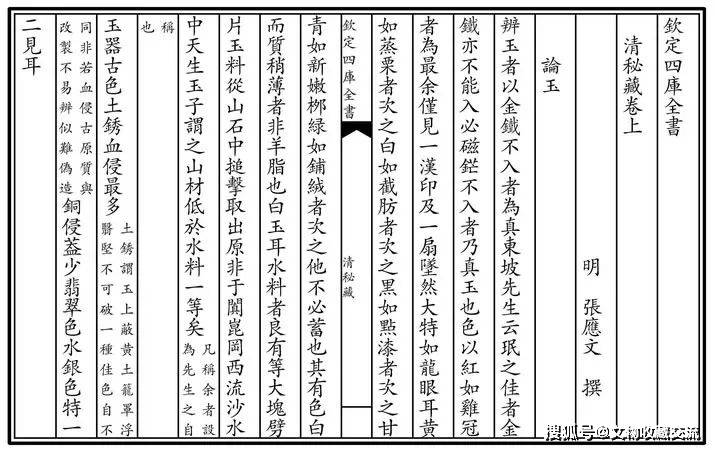 欽定四庫全書
清秘藏卷上
明 張應文 撰
論玉
辨玉者以金鐵不入者為真東坡先生云珉之佳者金
鐵亦不能入必磁鋩不入者乃真玉也色以紅如雞冠
者為最余僅見一漢印及一扇墜然大特如龍眼耳黃
如蒸粟者次之白如截肪者次之黑如點漆者次之甘
欽定四庫全書
清秘藏
青如新嫩栁綠如鋪絨者次之他不必蓄也其有色白
而質稍薄者非羊脂也白玉耳水料者良有等大塊劈
片玉料從山石中搥擊取出原非于闐崑岡西流沙水
中天生玉子謂之山材低於水料一等矣
凡稱余者設
為先生之自
稱
也
玉器古色土銹血侵最多
土銹謂玉上蔽黄土籠罩浮
翳堅不可破一種佳色自不
同非若血侵古原質與
改製不易辨似難偽造
銅侵葢少翡翠色水銀色特一
二見耳
搜狐号@文物收藏交流